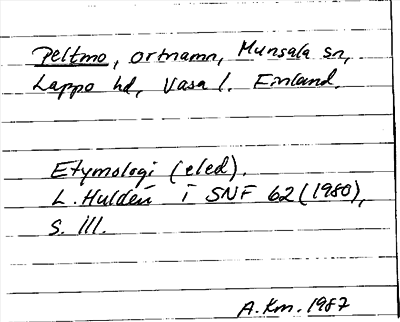 Peltmo, ortnamn, Munsala sn,
Lappo hd, Vasa l. Finland.
Etymologi (eled).
L. Huldén i SNF 62 (1980),
s. 111.
A.Km. 1987